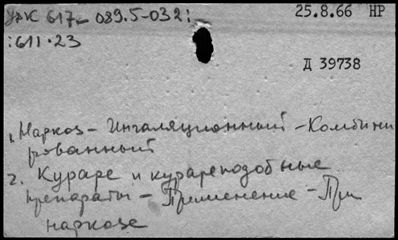 УДК 617-089.5-032:
25.8.66 НР
:611-23
Д 39738
1, Наркоз - Ингаляционный - Комбини
рованный
2. Кураре и курареподобные
препараты - Применение - При
наркозе